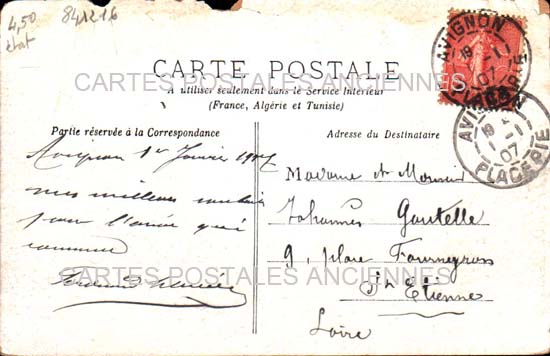 4,50
état
8412 16
CARTE POSTALE
A utiliser seulement dans le Service Intérieur
(France, Algérie et Tunisie)
Partie réservée à la Correspondance
Adresse du Destinataire
Avignon 1er Janvier 1907
mes meilleurs souhaits
pour l'année qui
commence
Madame et Monsieur
Johannès Goutelle
9, place Fourneyron
St Etienne
Loire
AVIGNON
19
1-1
07
AVI
19
1 -1
07
PLACE PIE
CARTES POSTALES ANCIENNES
CARTES POSTALES ANCIENNES